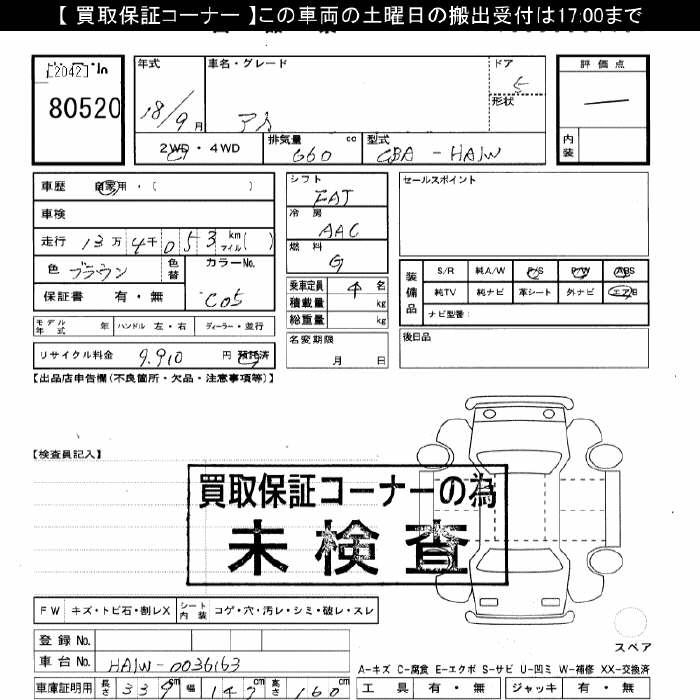 【 買取保証コーナー 】この車両の土曜日の搬出受付は17:00まで
[2042]
80520
年式
18/9月
車名・グレード
ドア
5
形状
評価点
内装
2WD・4WD
排気量
660 cc
型式
CBA - HA1W
車歴 自家用・( )
車検
走行 13万 4千 053 km マイル ( )
色 ブラウン
色替
カラーNo.
C05
保証書 有・無
モデル年式 年
ハンドル 左・右
ディーラー・並行
リサイクル料金 9.910 円 預託済
シフト
FAT
冷房
AAC
燃料
G
乗車定員 4 名
積載量 kg
総重量 kg
名変期限
月 日
セールスポイント
装備品
S/R 純A/W P/S P/W ABS
純TV 純ナビ 革シート 外ナビ エアB
ナビ型番:
後日品
【出品店申告欄(不良箇所・欠品・注意事項等)】
【検査員記入】
買取保証コーナーの為
未検査
FW キズ・トビ石・割レX
シート内装 コゲ・穴・汚レ・シミ・破レ・スレ
登録No.
車台No. HA1W-0036163
車庫証明用 長さ 339cm 幅 147cm 高さ 160cm
スペア
A-キズ C-腐食 E-エクボ S-サビ U-凹ミ W-補修 XX-交換済
工具 有・無
ジャッキ 有・無